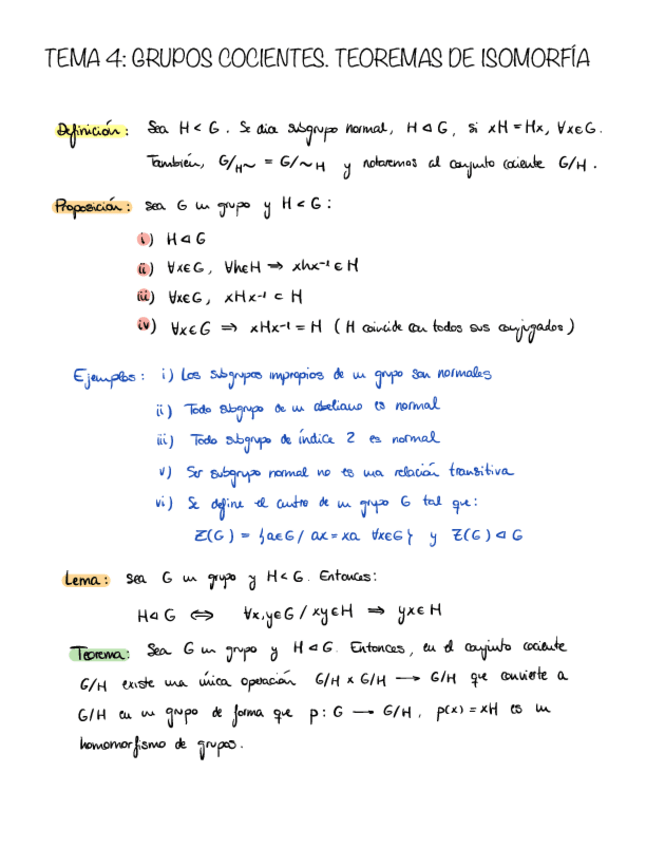 TEMA 4: GRUPOS COCIENTES. TEOREMAS DE ISOMORFÍA
Definición: Sea H < G. Se dice subgrupo normal, H ⊲ G, si xH = Hx, ∀x∈G.
También, G/H~ = G/~H y notaremos al conjunto cociente G/H.
Proposición: sea G un grupo y H < G:
i) H ⊲ G
ii) ∀x∈G, ∀h∈H ⇒ xhx⁻¹ ∈ H
iii) ∀x∈G, xHx⁻¹ ⊂ H
iv) ∀x∈G ⇒ xHx⁻¹ = H (H coincide con todos sus conjugados)
Ejemplos: i) Los subgrupos impropios de un grupo son normales
ii) Todo subgrupo de un abeliano es normal
iii) Todo subgrupo de índice 2 es normal
v) Ser subgrupo normal no es una relación transitiva
vi) Se define el centro de un grupo G tal que:
Z(G) = {a∈G / ax = xa ∀x∈G} y Z(G) ⊲ G
Lema: sea G un grupo y H < G. Entonces:
H ⊲ G ⇔ ∀x,y∈G / xy∈H ⇒ yx∈H
Teorema: Sea G un grupo y H ⊲ G. Entonces, en el conjunto cociente
G/H existe una única operación G/H × G/H → G/H que convierte a
G/H en un grupo de forma que p: G → G/H, p(x) = xH es un
homomorfismo de grupos.